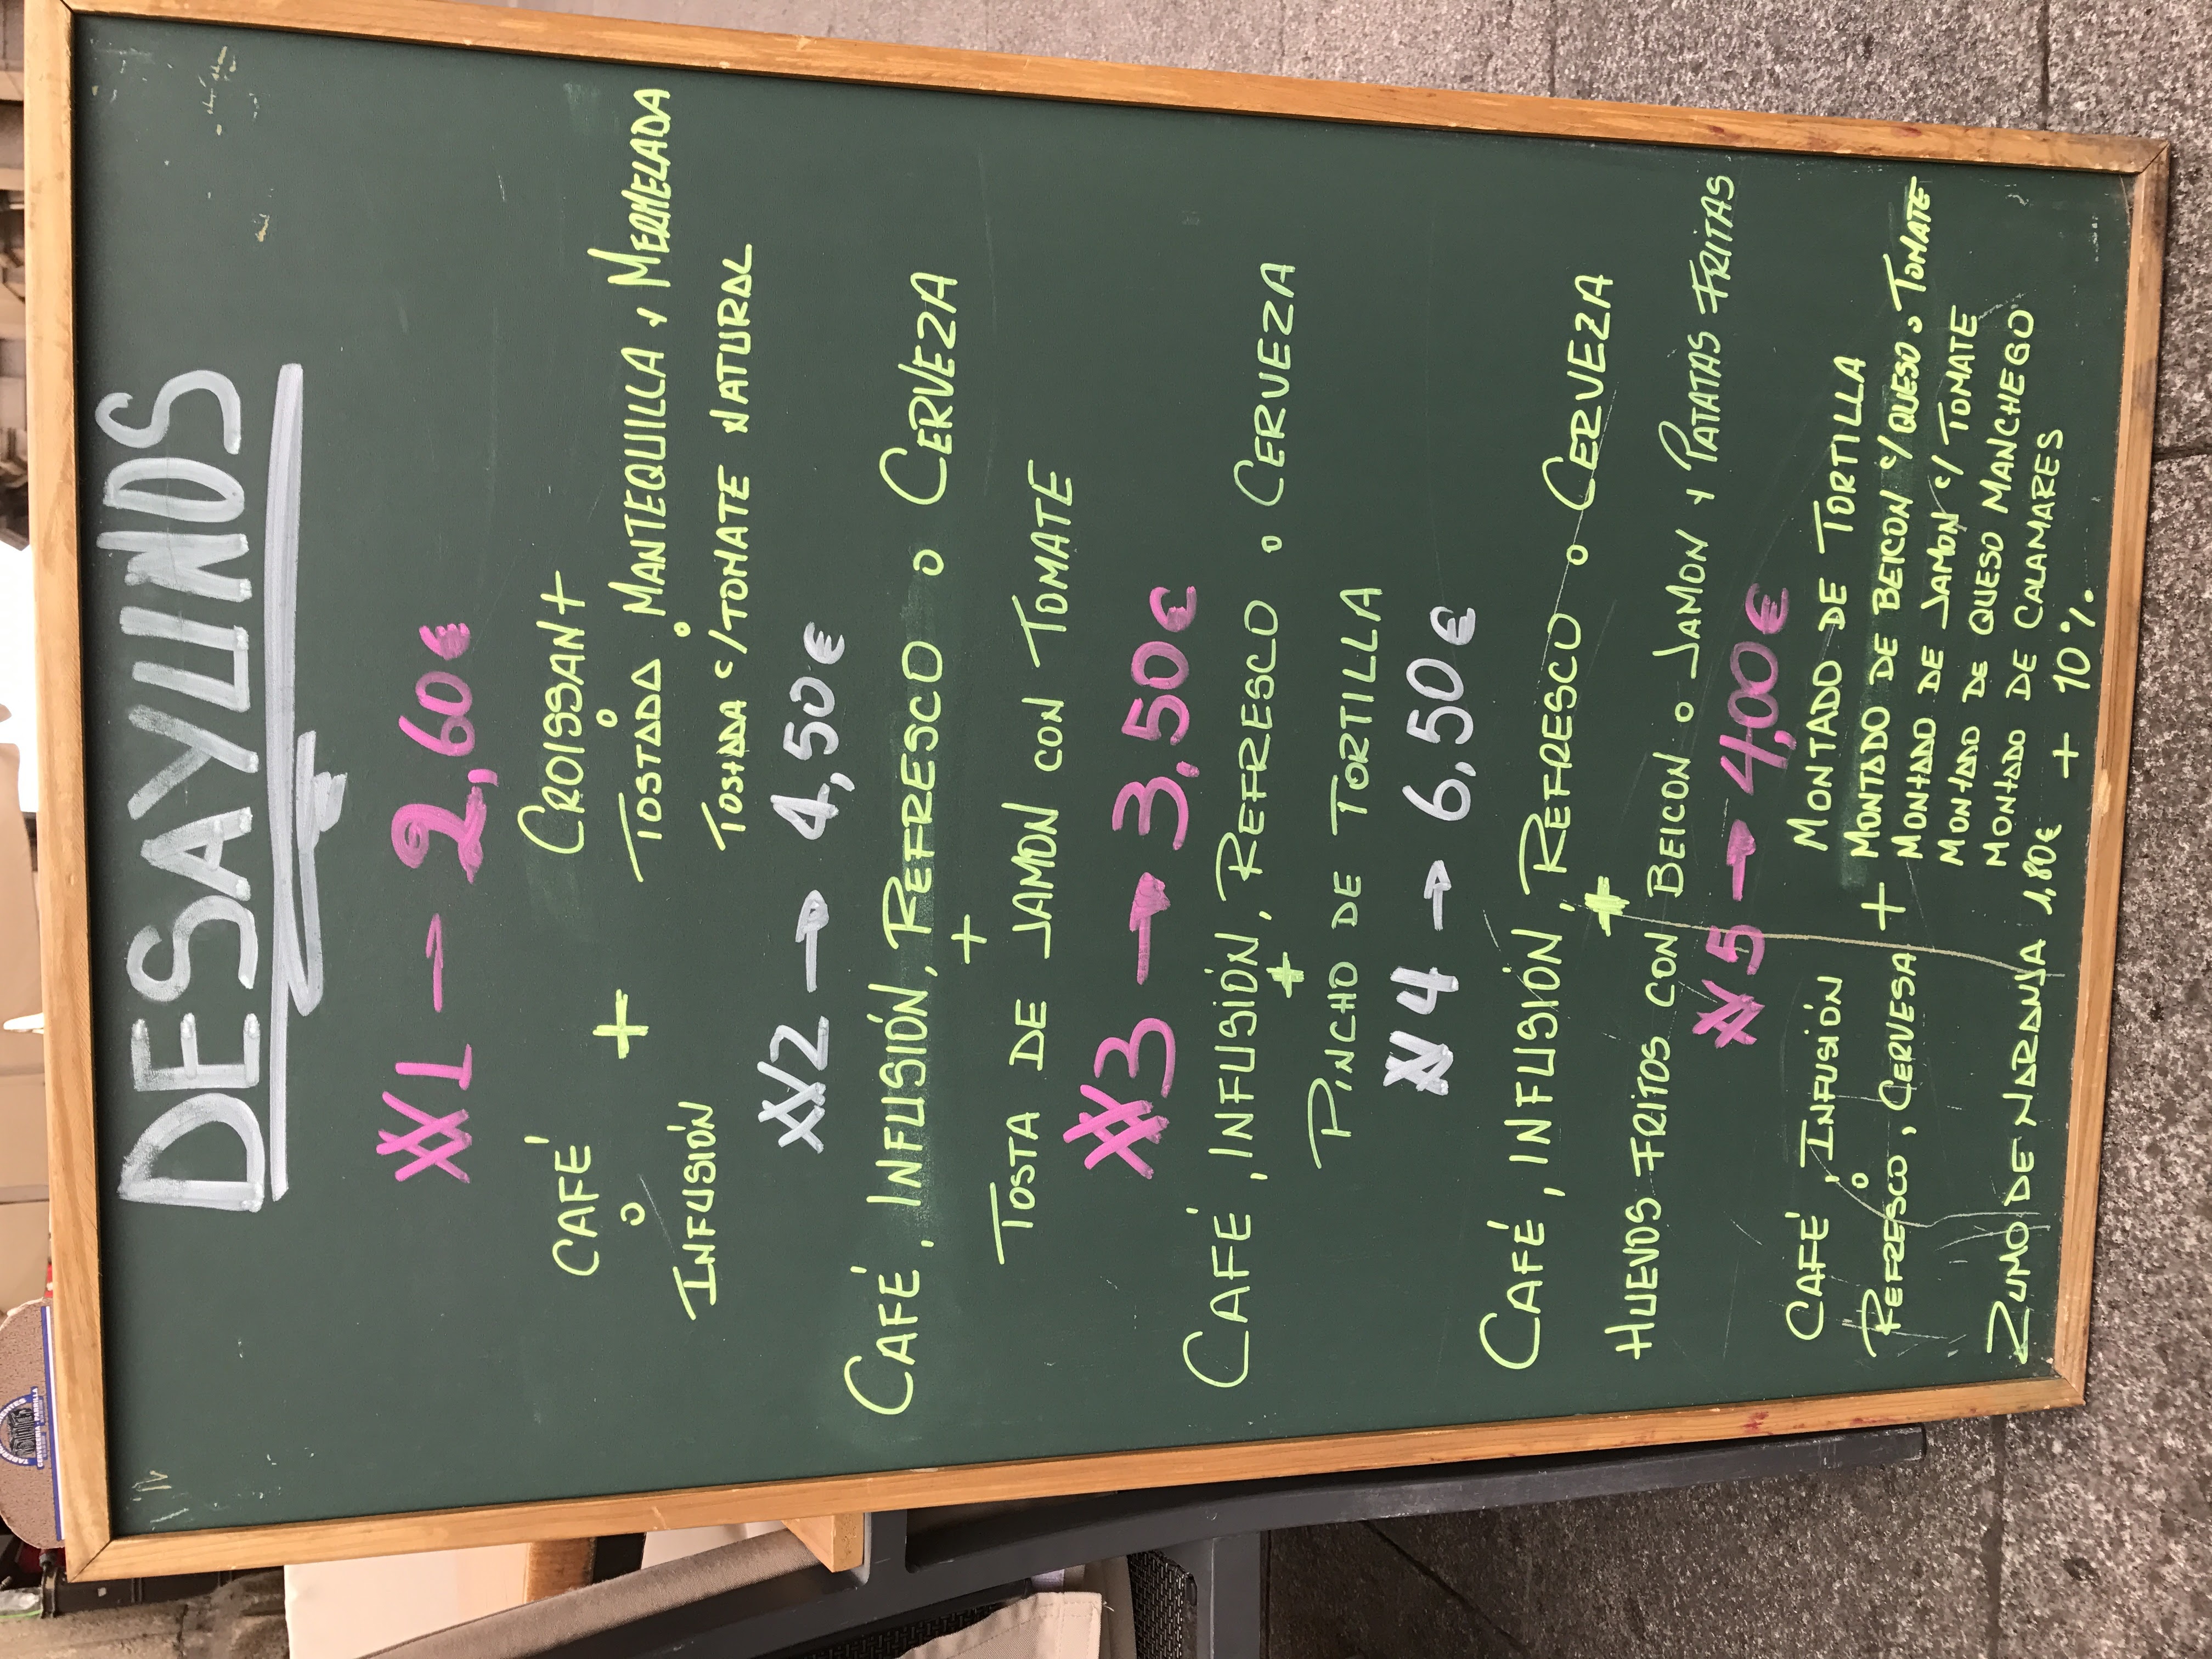 DESAYUNOS
№1 → 2,60€
CAFÉ
o
INFUSIÓN
+
CROISSANT
o
TOSTADA MANTEQUILLA Y MERMELADA
o
TOSTADA C/TOMATE NATURAL
№2 → 4,50€
CAFÉ, INFUSIÓN, REFRESCO o CERVEZA
+
TOSTA DE JAMON CON TOMATE
№3 → 3,50€
CAFÉ, INFUSIÓN, REFRESCO o CERVEZA
+
PINCHO DE TORTILLA
№4 → 6,50€
CAFÉ, INFUSIÓN, REFRESCO o CERVEZA
+
HUEVOS FRITOS CON BEICON o JAMON Y PATATAS FRITAS
№5 → 4,00€
CAFÉ, INFUSIÓN
o
REFRESCO, CERVESA +
MONTADO DE TORTILLA
MONTADO DE BEICON C/QUESO o TOMATE
MONTADO DE JAMON C/ TOMATE
MONTADO DE QUESO MANCHEGO
MONTADO DE CALAMARES
ZUMO DE NARANJA 1,80€ + 10%